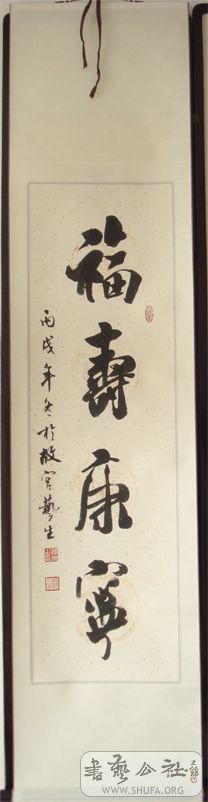 福壽康寧
丙戌年冬於故宮藝生
書藝公社
WWW.SHUFA.ORG